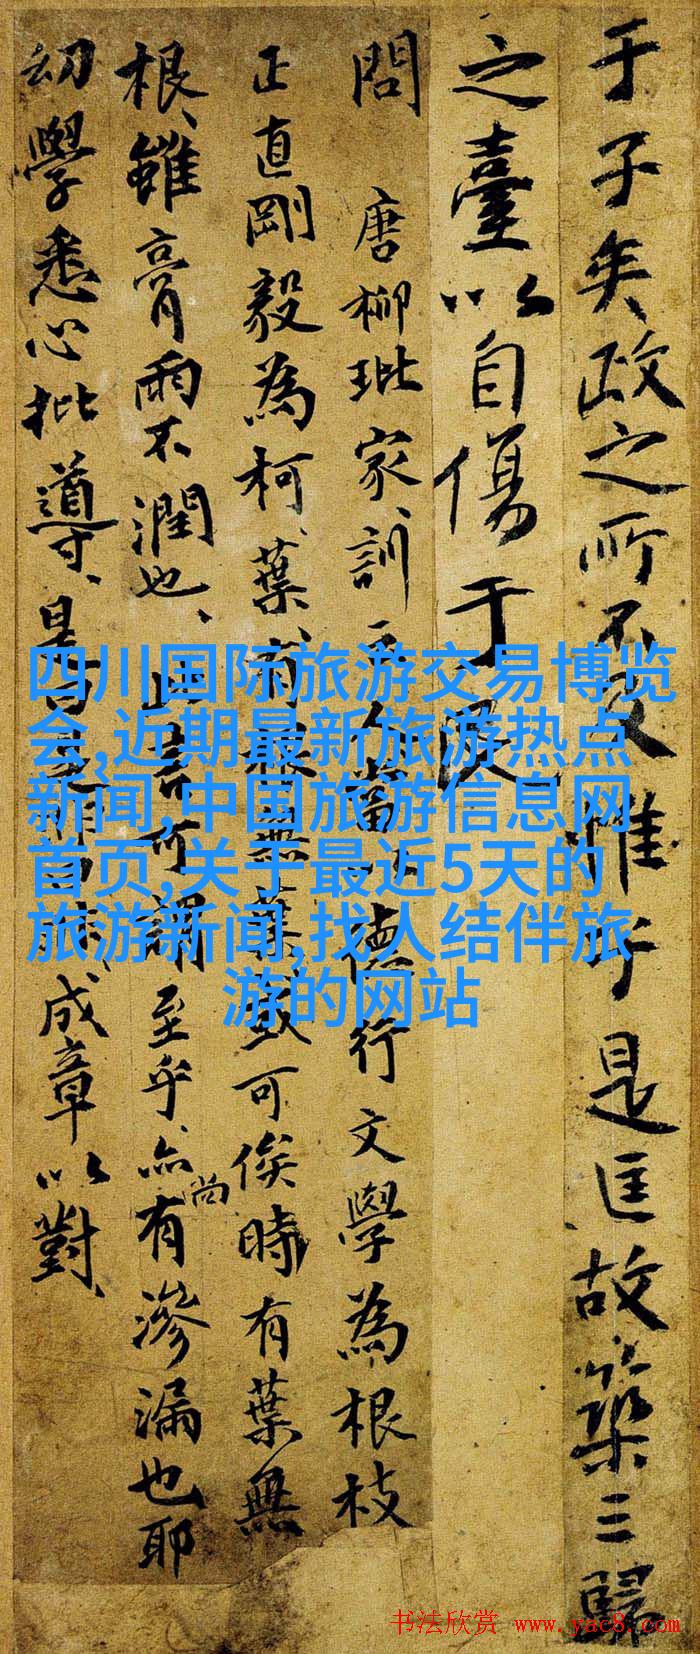 于子矣政之所不及惟于是匡故築三歸
之臺以自傷于民
問 唐柳玭家訓云人當以德行文學為根枝
正直剛毅為柯葉有根無葉或可俟時有葉無
根雖膏雨不潤也此言可謂至乎亦尚有滲漏也耶
幼學悉心批導是成章以對
四川国际旅游交易博览
会,近期最新旅游热点
新闻,中国旅游信息网
首页,关于最近5天的
旅游新闻,找人结伴旅
游的网站
书法欣赏 www.yac8.com